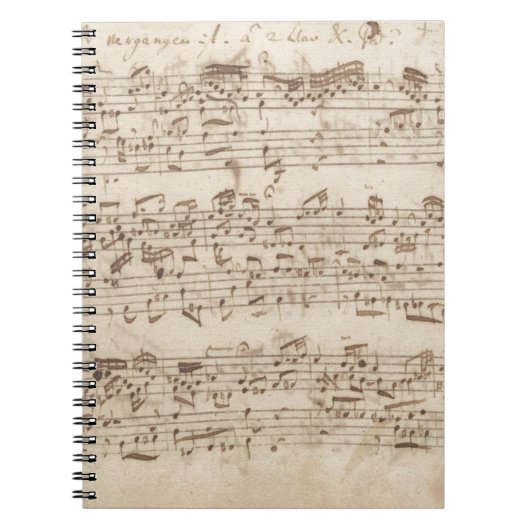 vergangen ist. a 2 Clav & Ped.